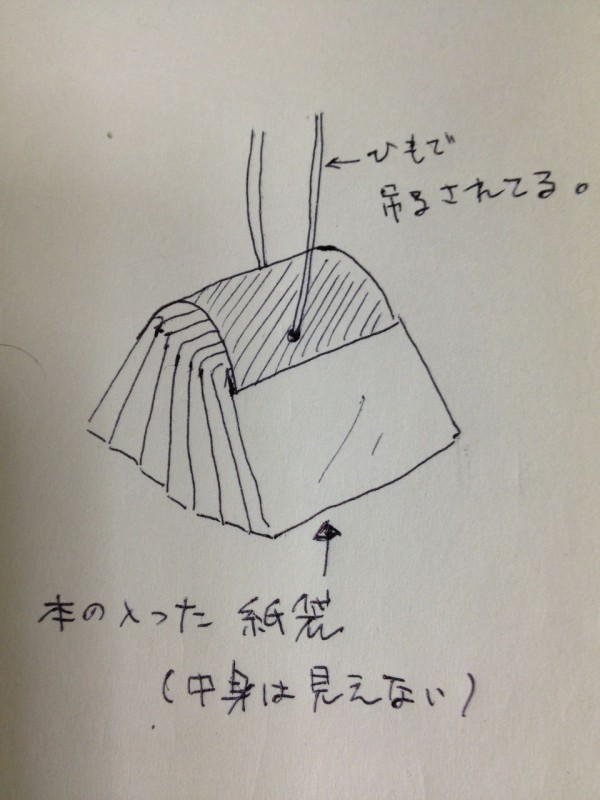 ←ひもで
吊るされてる。
本の入った 紙袋
(中身は見えない)